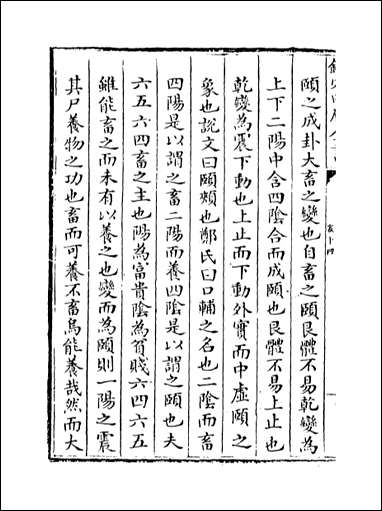 頤之成卦大畜之變也自畜之頤艮體不易乾變為
上下二陽中含四陰合而成頤也艮體不易上止也
乾變為震下動也上止而下動外實而中虛頤之
象也說文曰頤頰也鄭氏曰口輔之名也二陰而畜
四陽是以謂之畜二陽而養四陰是以謂之頤也夫
六五六四畜之主也陽為富貴陰為貧賤六四六五
雖能畜之而未有以養之也變而為頤則一陽之震
其尸養物之功也畜而可養不畜焉能養哉然而大